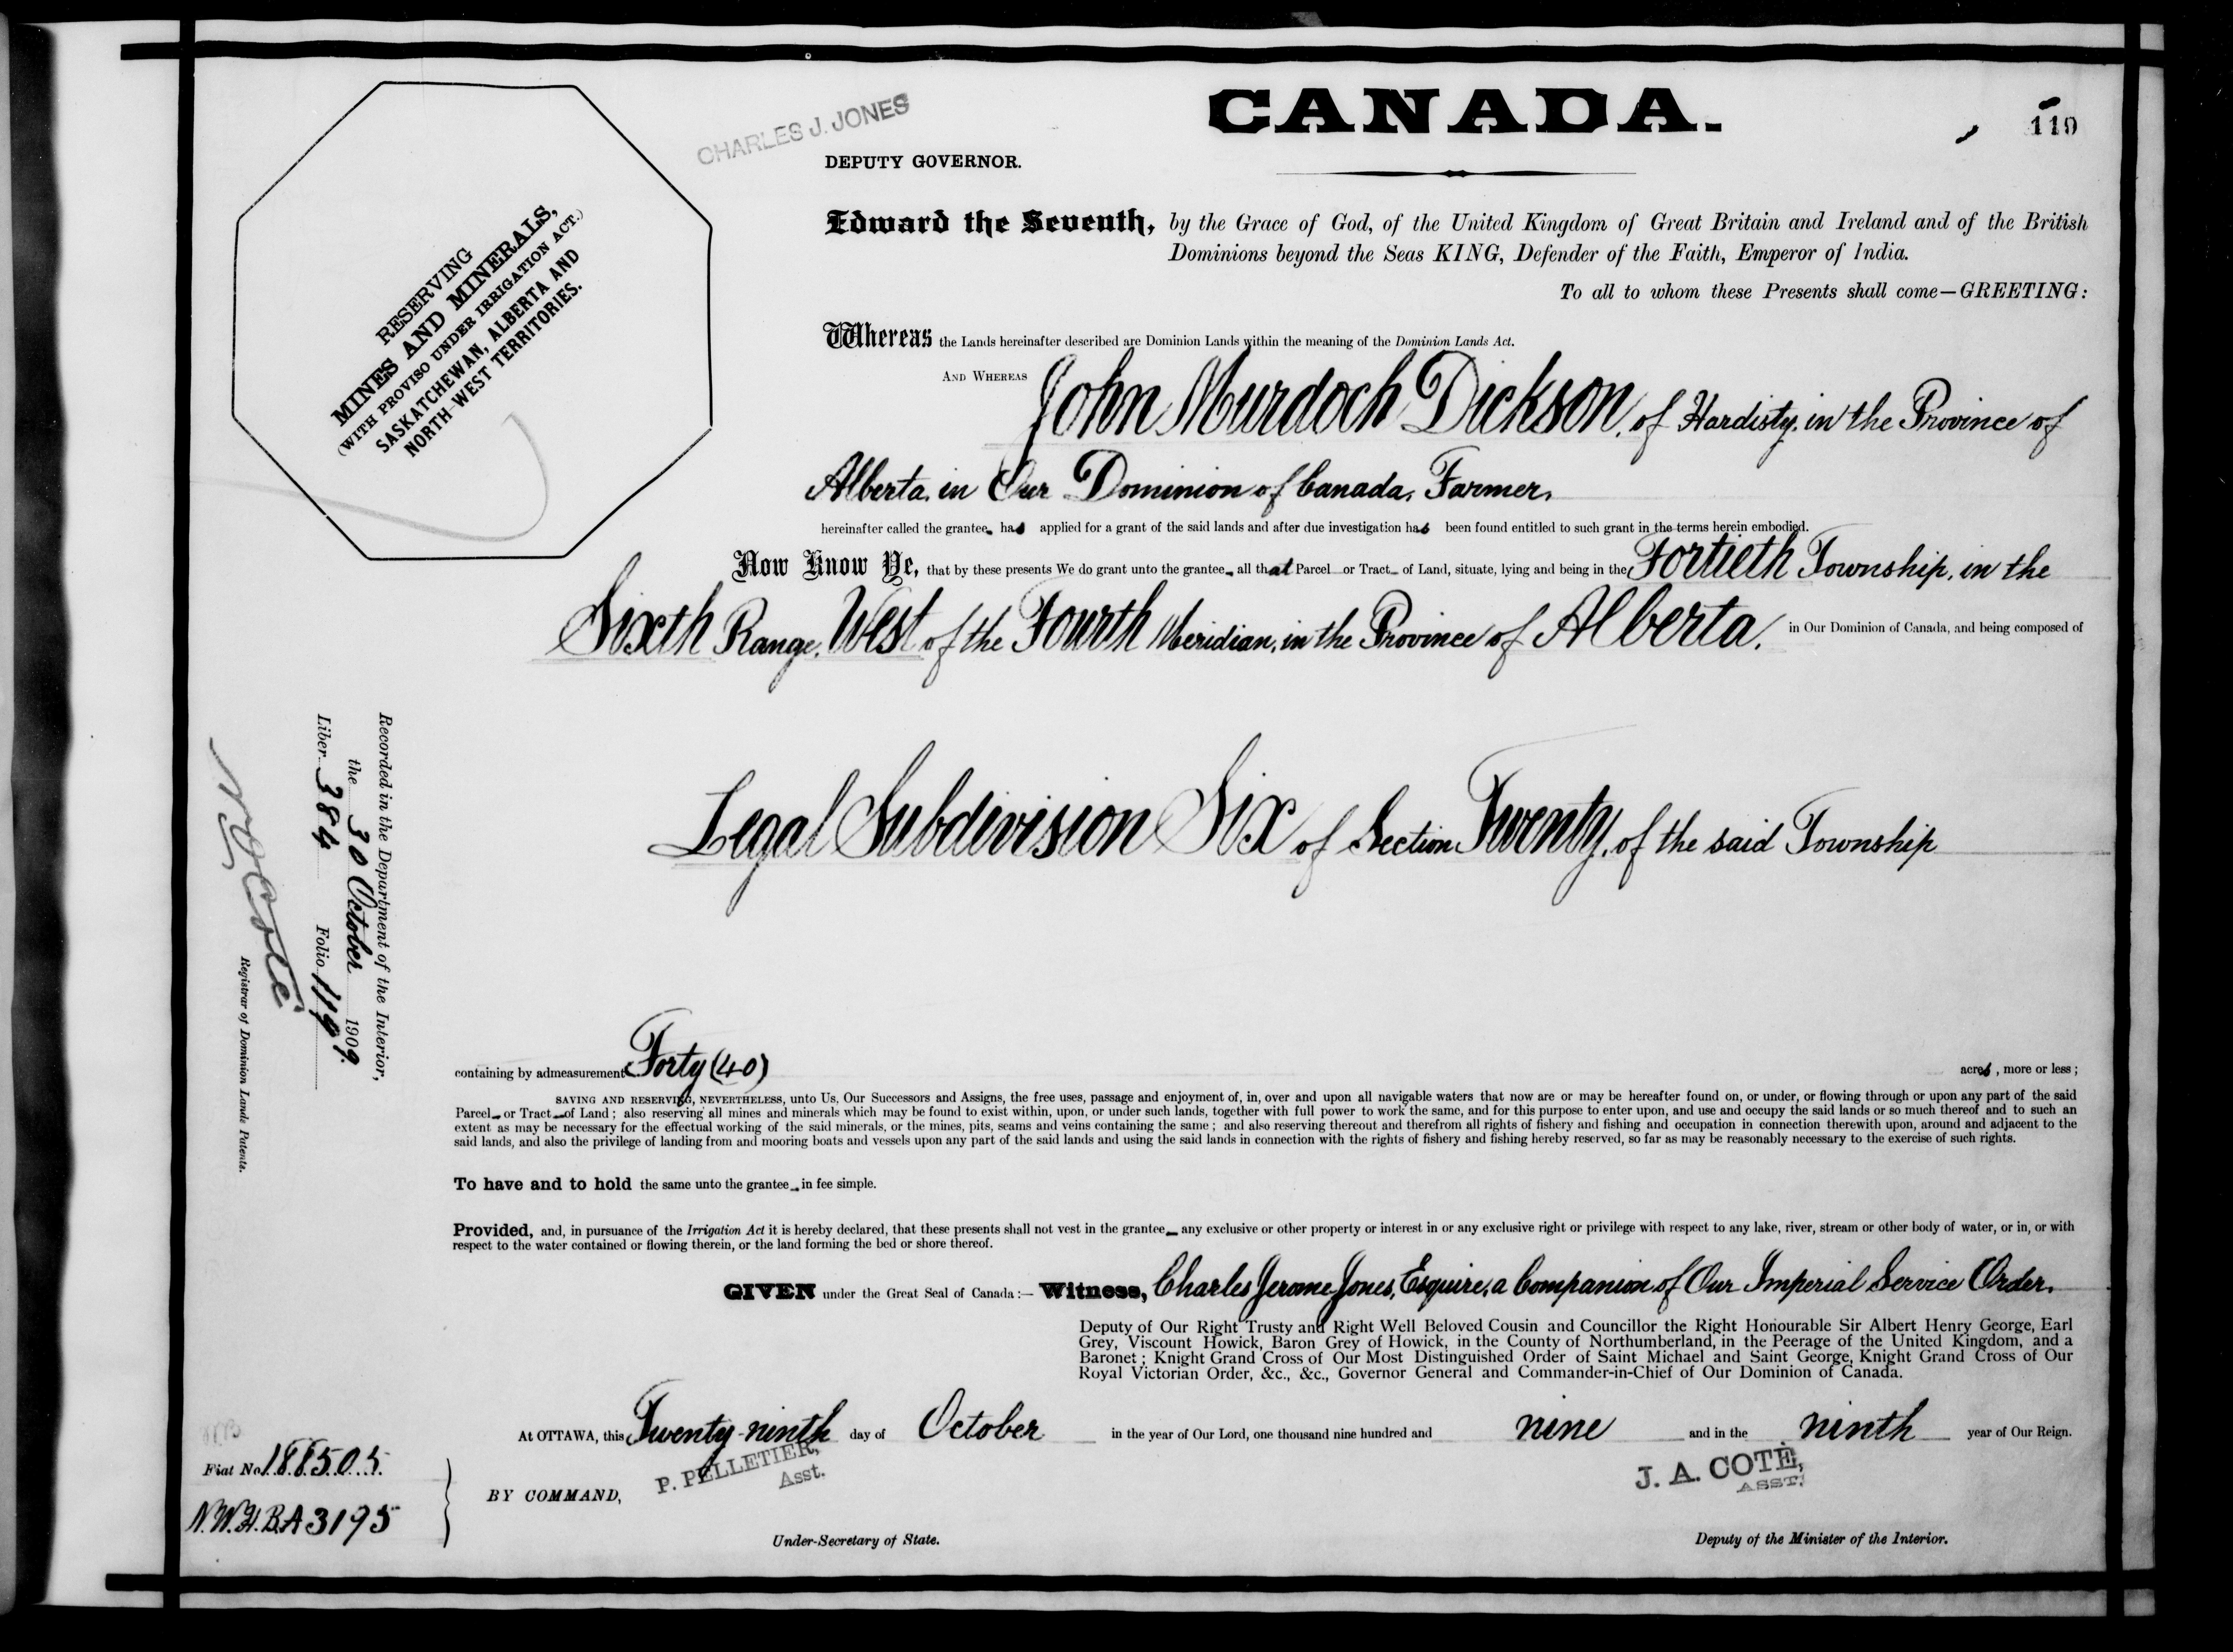 CANADA.
119
CHARLES J. JONES
DEPUTY GOVERNOR.
RESERVING
MINES AND MINERALS,
(WITH PROVISO UNDER IRRIGATION ACT.)
SASKATCHEWAN, ALBERTA AND
NORTH-WEST TERRITORIES.
Edward the Seventh, by the Grace of God, of the United Kingdom of Great Britain and Ireland and of the British
Dominions beyond the Seas KING, Defender of the Faith, Emperor of India.
To all to whom these Presents shall come—GREETING:
Whereas the Lands hereinafter described are Dominion Lands within the meaning of the Dominion Lands Act.
AND WHEREAS John Murdoch Dickson, of Hardisty, in the Province of
Alberta, in Our Dominion of Canada, Farmer,
hereinafter called the grantee, has applied for a grant of the said lands and after due investigation has been found entitled to such grant in the terms herein embodied.
Now Know Ye, that by these presents We do grant unto the grantee, all that Parcel or Tract of Land, situate, lying and being in the Fortieth Township, in the
Sixth Range, West of the Fourth Meridian, in the Province of Alberta, in Our Dominion of Canada, and being composed of
Legal Subdivision Six of Section Twenty, of the said Township
Recorded in the Department of the Interior,
the 30 October 1909.
Liber 384 Folio 119
N. O. Coté
Registrar of Dominion Lands Patents.
containing by admeasurement Forty (40) acres, more or less;
SAVING AND RESERVING, NEVERTHELESS, unto Us, Our Successors and Assigns, the free uses, passage and enjoyment of, in, over and upon all navigable waters that now are or may be hereafter found on, or under, or flowing through or upon any part of the said
Parcel or Tract of Land; also reserving all mines and minerals which may be found to exist within, upon, or under such lands, together with full power to work the same, and for this purpose to enter upon, and use and occupy the said lands or so much thereof and to such an
extent as may be necessary for the effectual working of the said minerals, or the mines, pits, seams and veins containing the same; and also reserving thereout and therefrom all rights of fishery and fishing and occupation in connection therewith upon, around and adjacent to the
said lands, and also the privilege of landing from and mooring boats and vessels upon any part of the said lands and using the said lands in connection with the rights of fishery and fishing hereby reserved, so far as may be reasonably necessary to the exercise of such rights.
To have and to hold the same unto the grantee in fee simple.
Provided, and, in pursuance of the Irrigation Act it is hereby declared, that these presents shall not vest in the grantee any exclusive or other property or interest in or any exclusive right or privilege with respect to any lake, river, stream or other body of water, or in, or with
respect to the water contained or flowing therein, or the land forming the bed or shore thereof.
GIVEN under the Great Seal of Canada:— Witness, Charles Jerome Jones, Esquire, a Companion of Our Imperial Service Order,
Deputy of Our Right Trusty and Right Well Beloved Cousin and Councillor the Right Honourable Sir Albert Henry George, Earl
Grey, Viscount Howick, Baron Grey of Howick, in the County of Northumberland, in the Peerage of the United Kingdom, and a
Baronet; Knight Grand Cross of Our Most Distinguished Order of Saint Michael and Saint George, Knight Grand Cross of Our
Royal Victorian Order, &c., &c., Governor General and Commander-in-Chief of Our Dominion of Canada.
At OTTAWA, this Twenty-ninth day of October in the year of Our Lord, one thousand nine hundred and nine and in the ninth year of Our Reign.
Fiat No. 188505
N.W.H.B.A 3195
BY COMMAND,
P. PELLETIER,
Asst.
Under-Secretary of State.
J. A. COTÉ,
ASST.
Deputy of the Minister of the Interior.